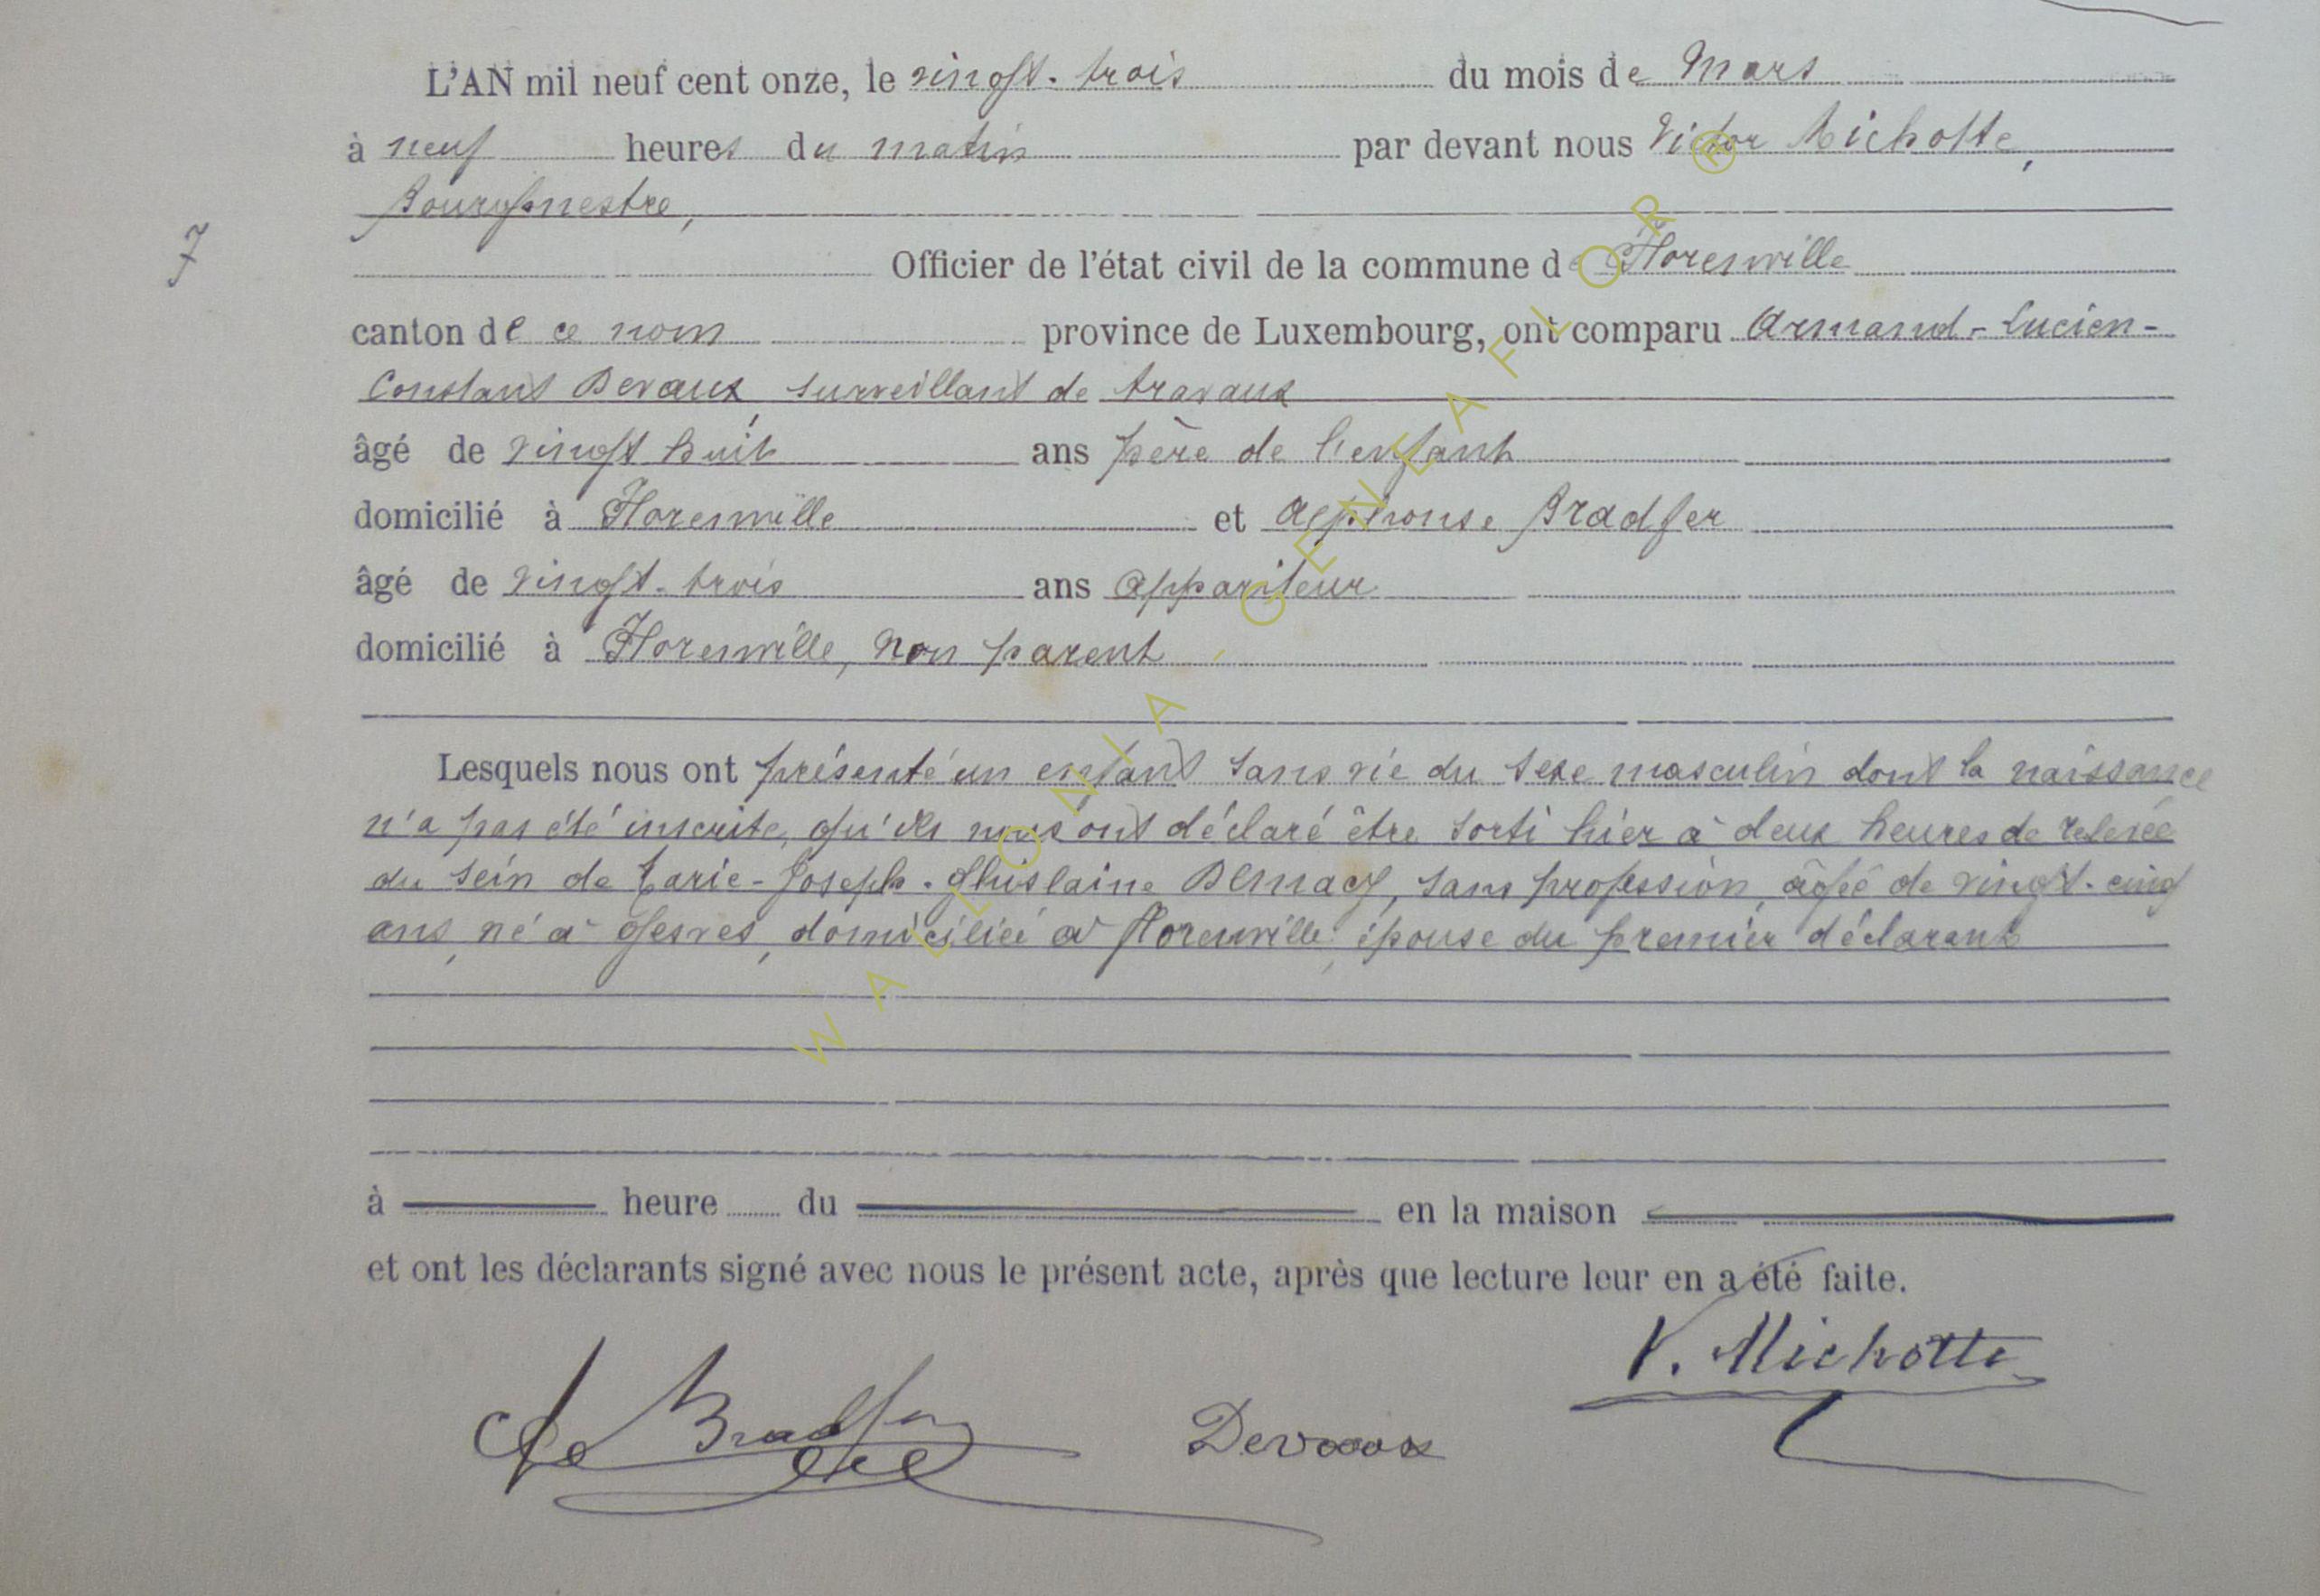 L'AN mil neuf cent onze, le vingt-trois du mois de Mars
à neuf heures du matin par devant nous Victor Michotte,
Bourgmestre,
7
Officier de l'état civil de la commune de Florenville
canton de ce nom province de Luxembourg, ont comparu Armand-Lucien-
Constant Devaux, surveillant de travaux
âgé de vingt huit ans père de l'enfant
domicilié à Florenville et Alphonse Bradfer
âgé de vingt-trois ans appariteur
domicilié à Florenville, non parent
Lesquels nous ont présenté un enfant sans vie du sexe masculin dont la naissance
n'a pas été inscrite, qu'ils nous ont déclaré être sorti hier à deux heures de relevée
du sein de Marie-Joseph-Ghislaine, sans profession, âgée de vingt-cinq
ans, né à Gesves, domiciliée à Florenville, épouse du premier déclarant
à heure du en la maison
et ont les déclarants signé avec nous le présent acte, après que lecture leur en a été faite.
V. Michotte
Bradfer Devaux
WALLONIA, GENEAFLOR ®